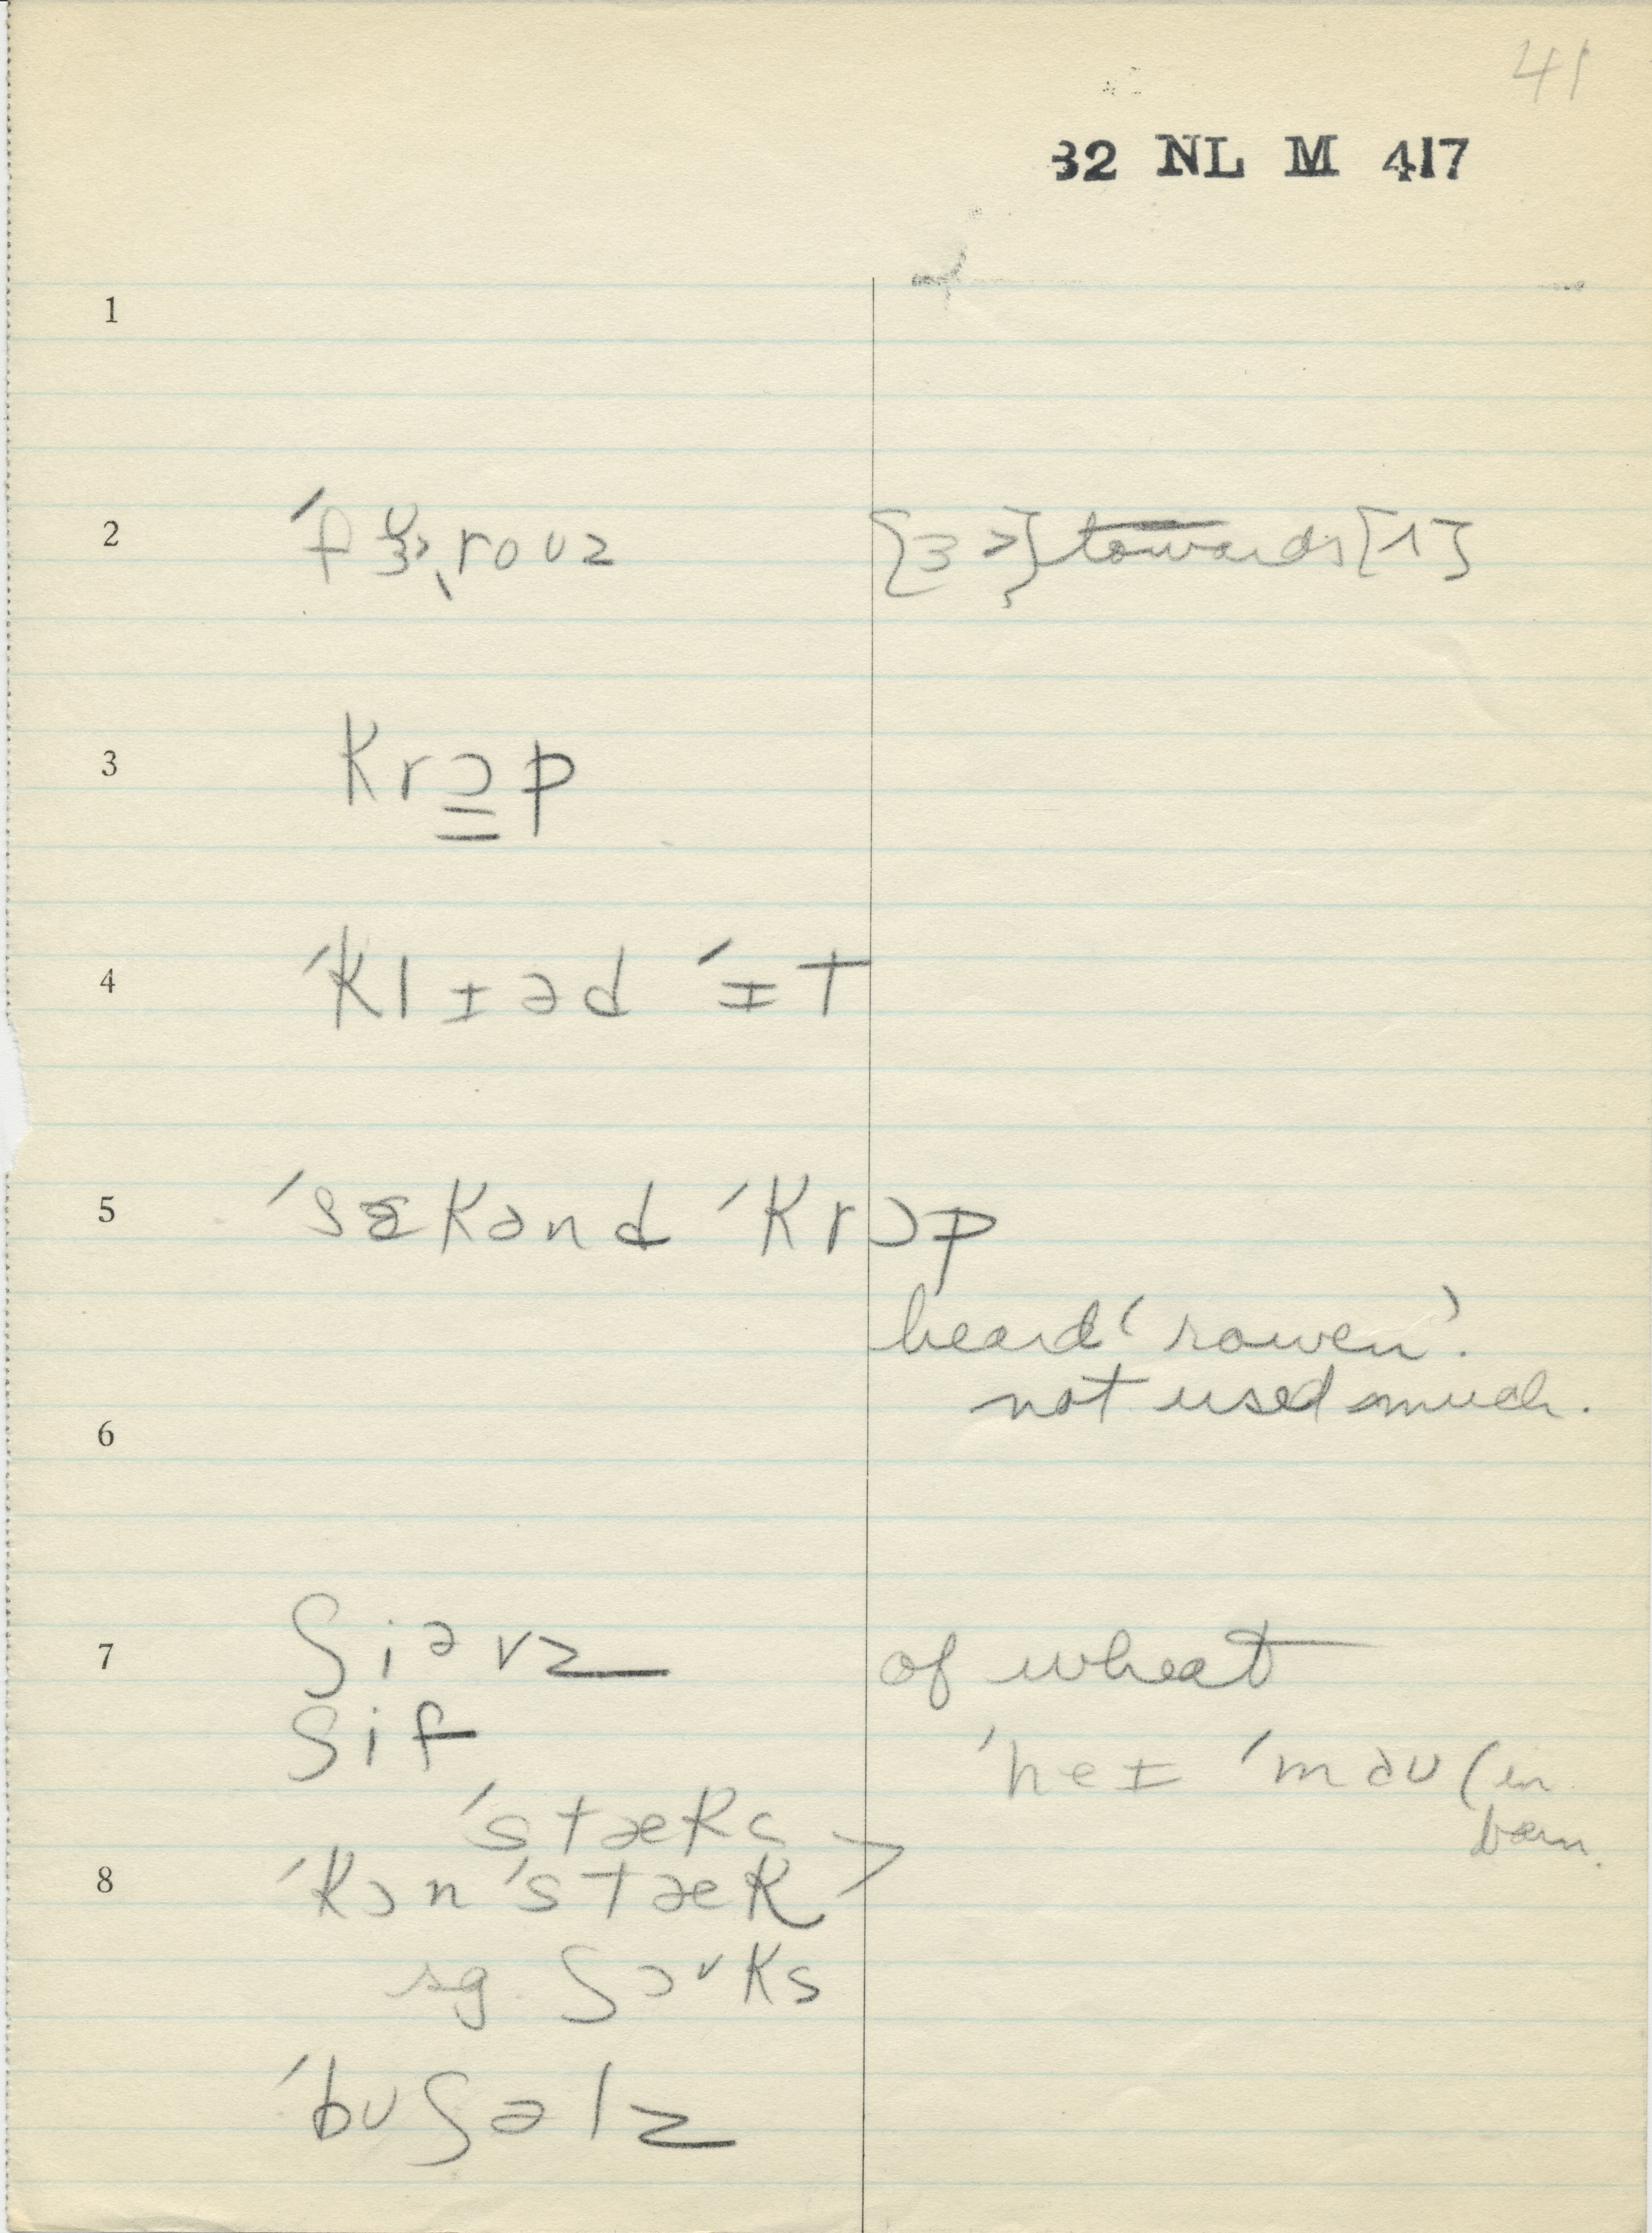 41
32 NL M 417
1
2 ˈfɜ˞ˌroʊz {ɜ˃} towards [ʌ]
3 krɔ̳p
4 ˈklɪəd ˈɪt
5 ˈsɛkənd ˈkrɔp
heard 'rowen'.
not used much.
6
7 ʃiəvz of wheat
ʃif
ˈheɪ ˈmaʊ (in
ˈstæks > barn.
8 ˈkɔnˈstæk
sg. ʃɔɚks
ˈbʊʃəlz